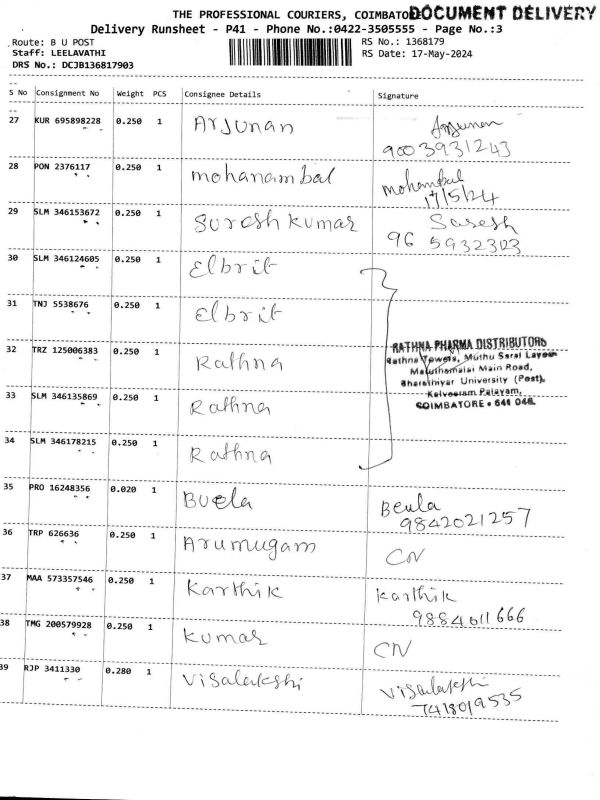 THE PROFESSIONAL COURIERS, COIMBATO
DOCUMENT DELIVERY
Delivery Runsheet - P41 - Phone No.:0422-3505555 - Page No.:3
Route: B U POST
RS No.: 1368179
Staff: LEELAVATHI
RS Date: 17-May-2024
DRS No.: DCJB136817903
S No Consignment No Weight PCS Consignee Details Signature
27 KUR 695898228 0.250 1 Arjunan Arjunan
9003931243
28 PON 2376117 0.250 1 mohanambal mohambal
17/5/24
29 SLM 346153672 0.250 1 Suresh kumar Suresh
96 5932303
30 SLM 346124605 0.250 1 Elbrit
31 TNJ 5538676 0.250 1 Elbrit
RATHNA PHARMA DISTRIBUTORS
32 TRZ 125006383 0.250 1 Rathna
Rathna Towers, Muthu Saral Layout
Maruthamalai Main Road,
Bharathiyar University (Post),
Kalveeram Palayam,
COIMBATORE - 641 046.
33 SLM 346135869 0.250 1 Rathna
34 SLM 346178215 0.250 1 Rathna
35 PRO 16248356 0.020 1 Buela Beula
9842021257
36 TRP 626636 0.250 1 Arumugam CN
37 MAA 573357546 0.250 1 Karthik Karthik
9884011666
38 TMG 200579928 0.250 1 Kumar CN
39 RJP 3411330 0.280 1 Visalakshi Visalakshi
7418019535